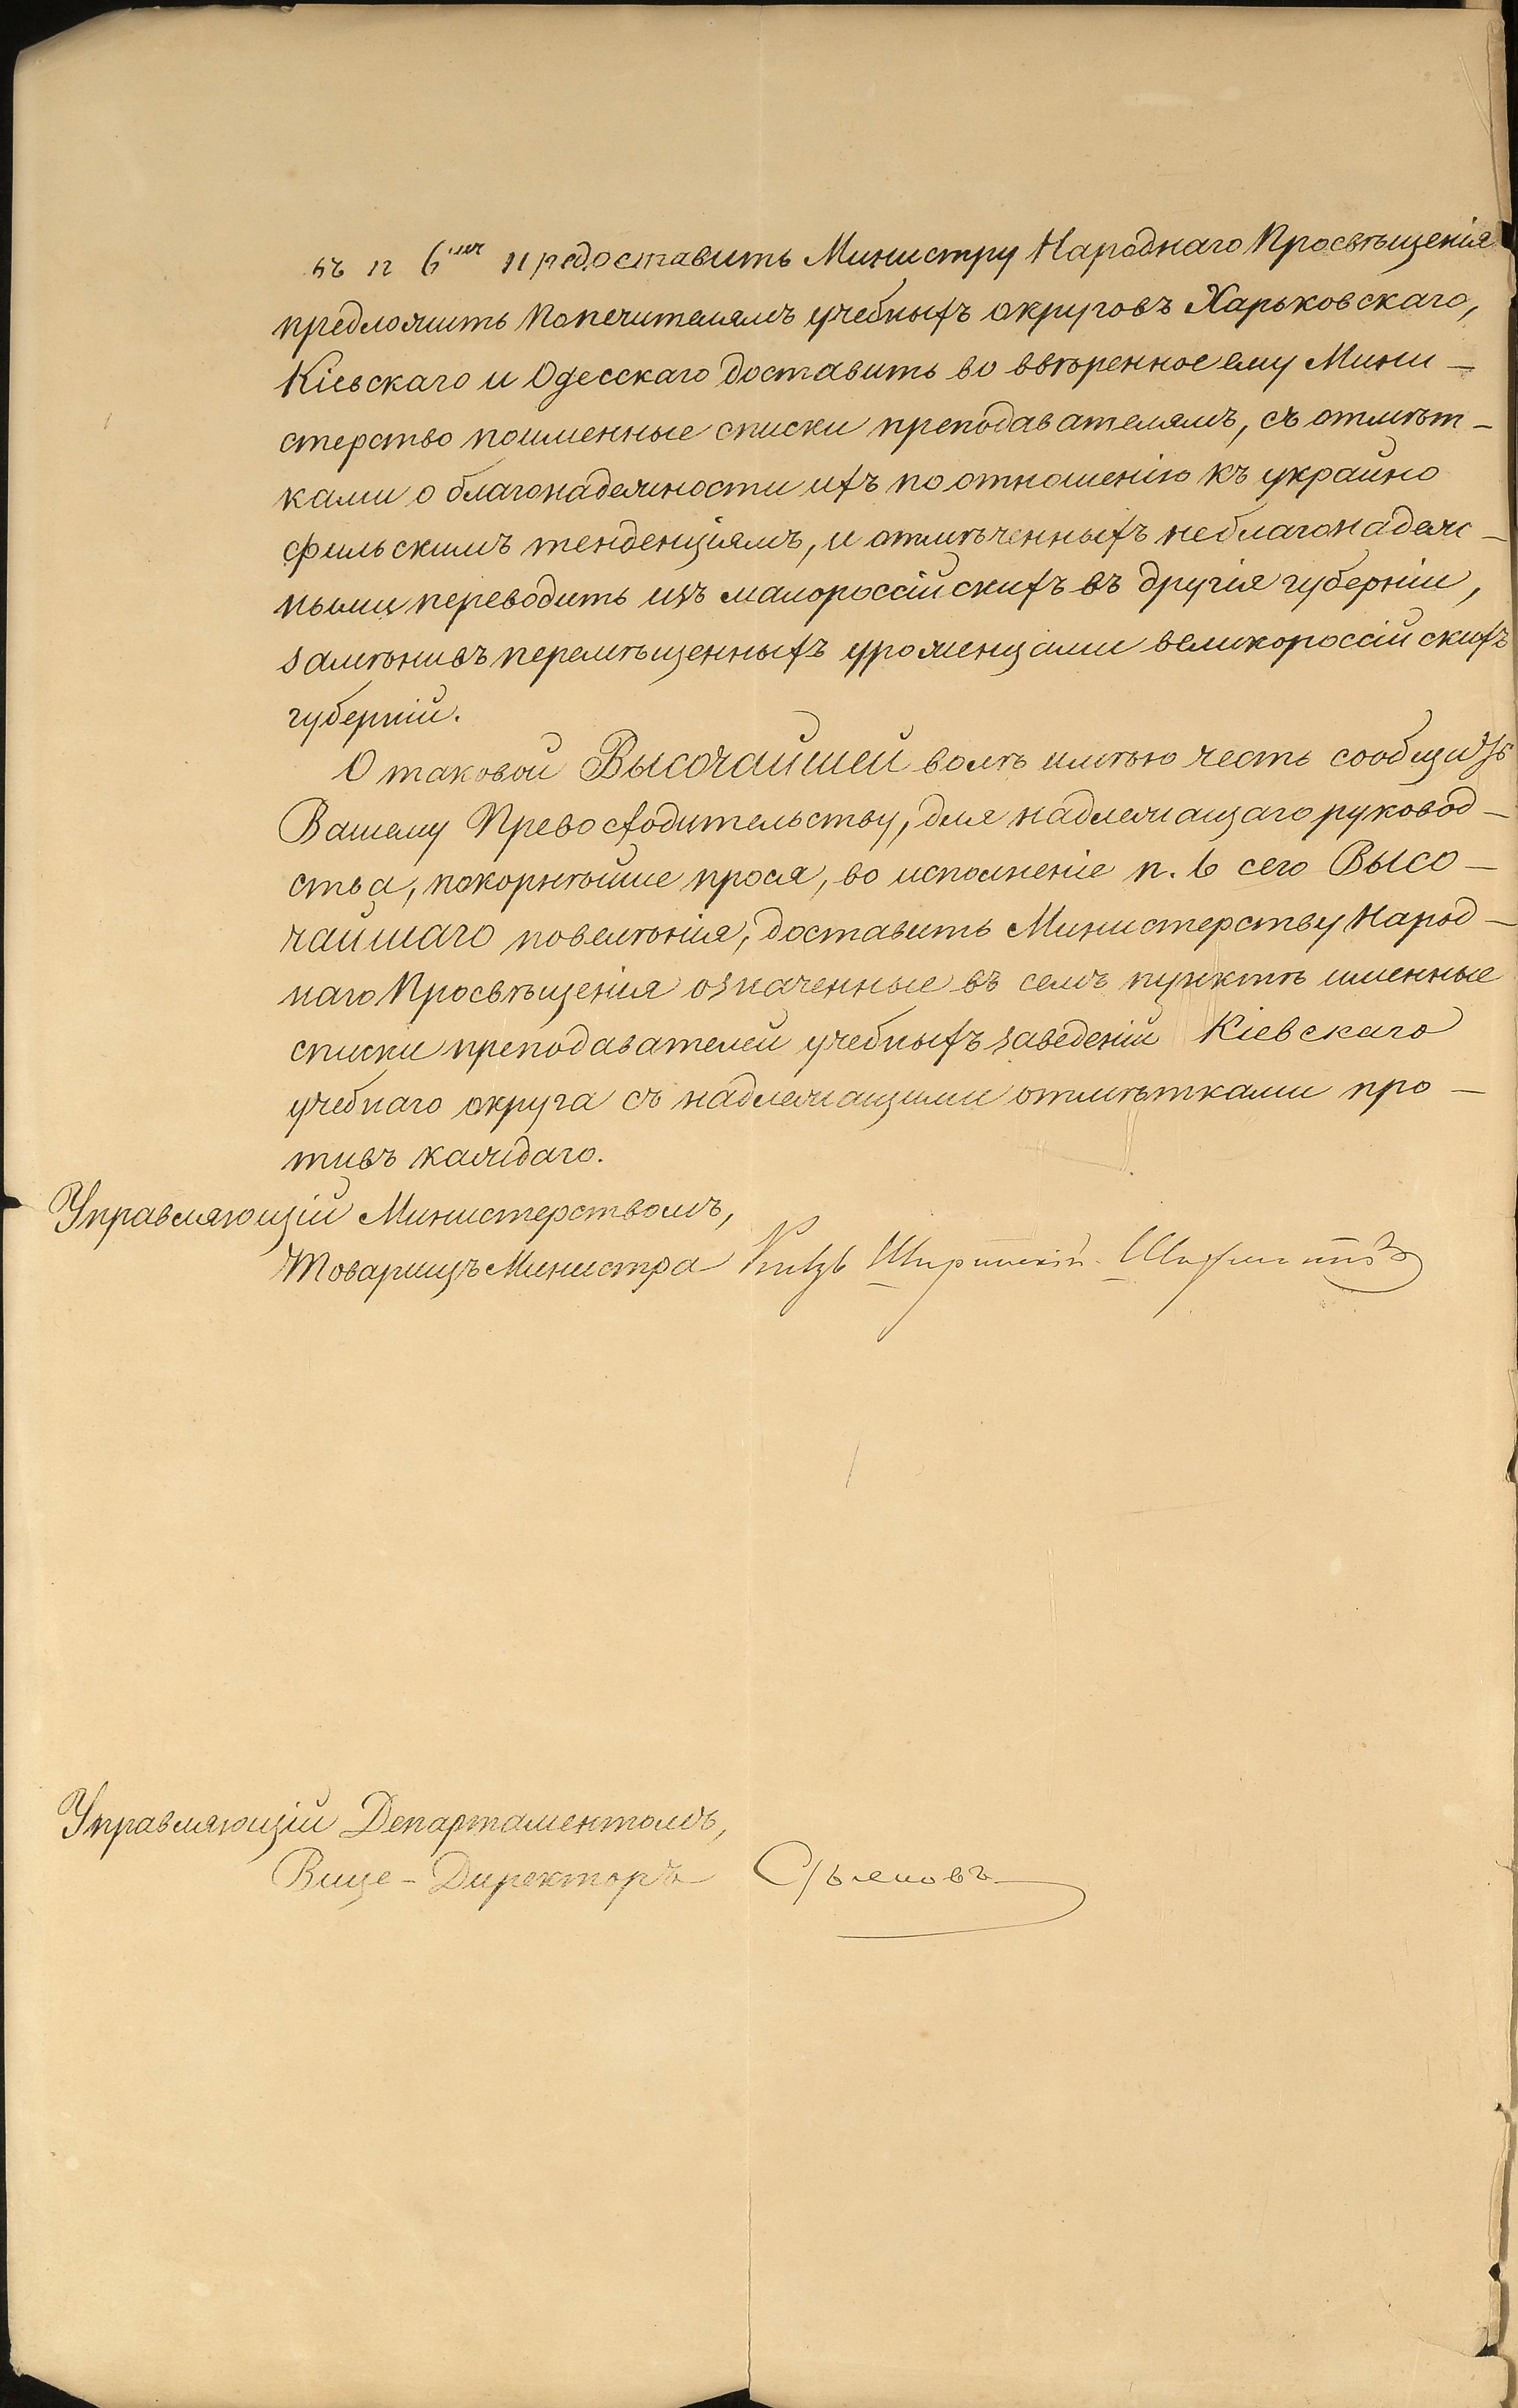 въ п 6ыхъ предоставить Министру Народнаго Просвѣщенія
предложить Попечителямъ учебныхъ округовъ Харьковскаго,
Кіевскаго и Одесскаго доставить во ввѣренное ему Мини-
стерство поименные списки преподавателямъ, съ отмѣт-
ками о благонадежности ихъ по отношенію къ украйно
фильскимъ тенденціямъ, и отмѣченныхъ неблагонадеж-
ными переводить изъ малороссійскихъ въ другія губерніи,
замѣнивъ перемѣщенныхъ уроженцами великороссійскихъ
губерній.
О таковой Высочайшей волѣ имѣю честь сообщить
Вашему Превосходительству, для надлежащаго руковод-
ства, покорнѣйше прося, во исполненіе п. 6 сего Высо-
чайшаго повелѣнія, доставить Министерству Народ-
наго Просвѣщенія означенные въ семъ пунктѣ именные
списки преподавателей учебныхъ заведеній Кіевскаго
учебнаго округа съ надлежащими отмѣтками про-
тивъ каждаго.
Управляющій Министерствомъ,
Товарищъ Министра Князь Ширинскій-Шихматовъ
Управляющій Департаментомъ,
Вице-Директоръ